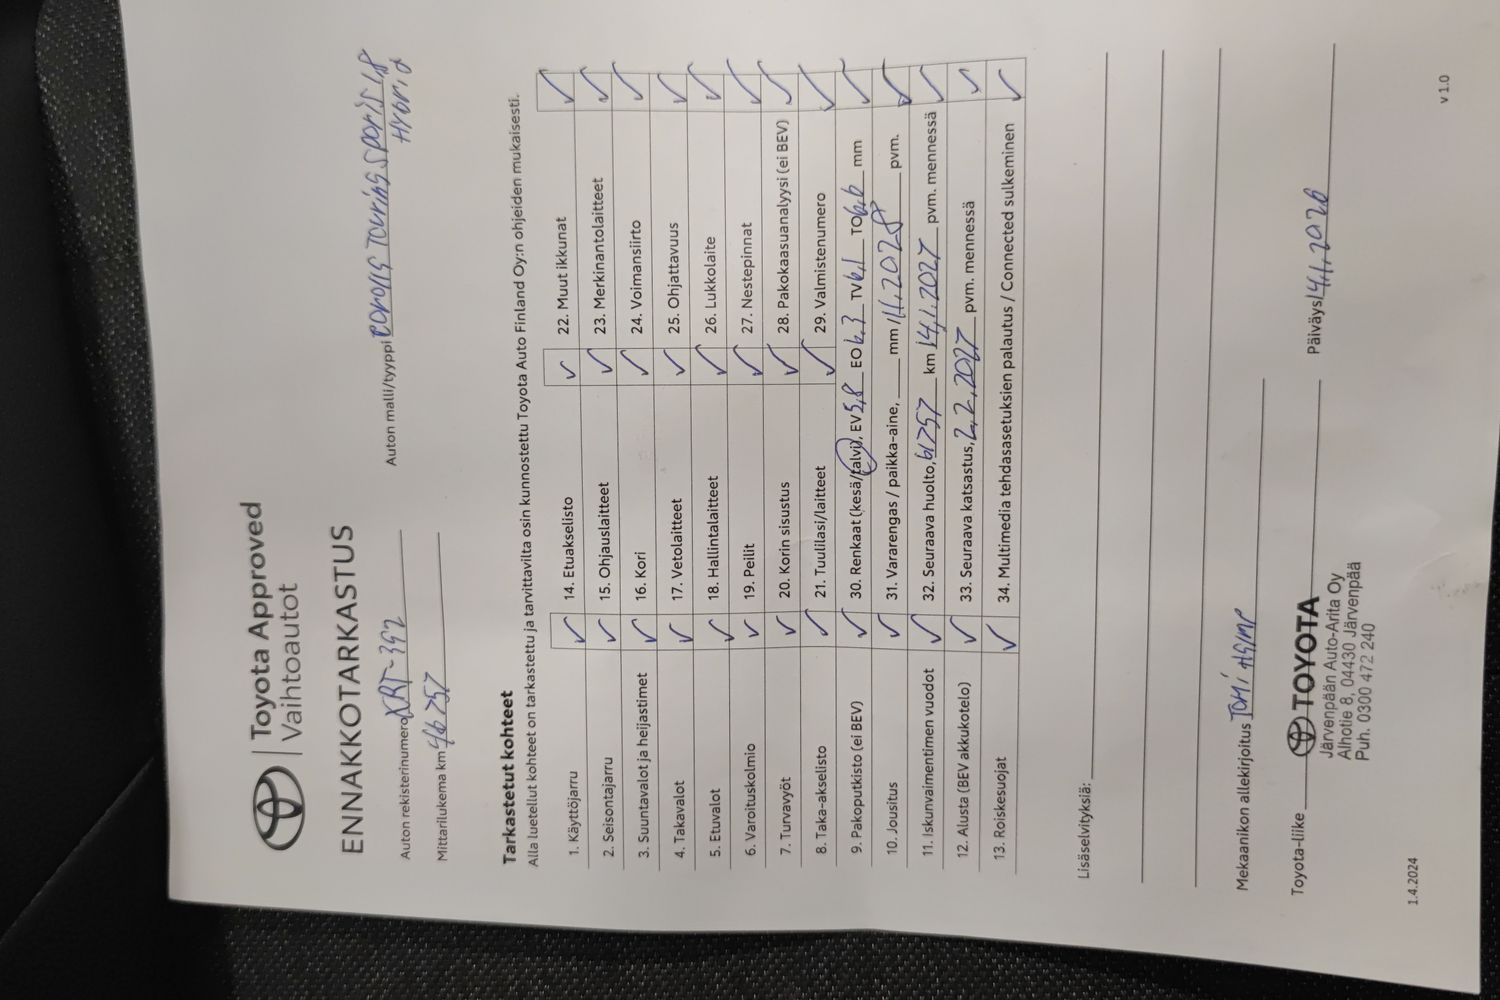 Toyota Approved
Vaihtoautot
ENNAKKOTARKASTUS
Auton rekisterinumero KRT-392 Auton malli/tyyppi Corolla Touring Sports 1,8
Hybrid
Mittarilukema km 46757
Tarkastetut kohteet
Alla luetellut kohteet on tarkastettu ja tarvittavilta osin kunnostettu Toyota Auto Finland Oy:n ohjeiden mukaisesti.
1. Käyttöjarru ✓ 14. Etuakselisto ✓ 22. Muut ikkunat ✓
2. Seisontajarru ✓ 15. Ohjauslaitteet ✓ 23. Merkinantolaitteet ✓
3. Suuntavalot ja heijastimet ✓ 16. Kori ✓ 24. Voimansiirto ✓
4. Takavalot ✓ 17. Vetolaitteet ✓ 25. Ohjattavuus ✓
5. Etuvalot ✓ 18. Hallintalaitteet ✓ 26. Lukkolaite ✓
6. Varoituskolmio ✓ 19. Peilit ✓ 27. Nestepinnat ✓
7. Turvavyöt ✓ 20. Korin sisustus ✓ 28. Pakokaasuanalyysi (ei BEV) ✓
8. Taka-akselisto ✓ 21. Tuulilasi/laitteet ✓ 29. Valmistenumero ✓
9. Pakoputkisto (ei BEV) ✓ 30. Renkaat (kesä/talvi), EV 5,8 EO 6,3 TV 6,1 TO 6,6 mm ✓
10. Jousitus ✓ 31. Vararengas / paikka-aine, mm / 11.2028 pvm. ✓
11. Iskunvaimentimen vuodot ✓ 32. Seuraava huolto, 61757 km 14.1.2027 pvm. mennessä ✓
12. Alusta (BEV akkukotelo) ✓ 33. Seuraava katsastus, 2.2.2027 pvm. mennessä ✓
13. Roiskesuojat ✓ 34. Multimedia tehdasasetuksien palautus / Connected sulkeminen ✓
Lisäselvityksiä:
Mekaanikon allekirjoitus Tomi
Toyota-liike TOYOTA Päiväys 14.1.2026
Järvenpään Auto-Arita Oy
Alhotie 8, 04430 Järvenpää
Puh. 0300 472 240
1.4.2024 v 1.0